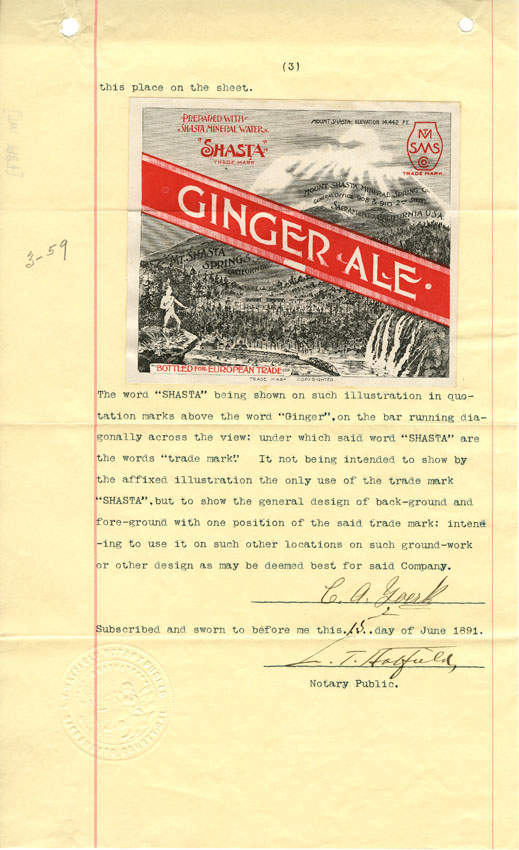 (3)
this place on the sheet.
PREPARED WITH
SHASTA MINERAL WATER.
"SHASTA"
TRADE MARK
MOUNT SHASTA; ELEVATION 14,442 FT.
MT
SMS
CO
TRADE MARK.
MOUNT SHASTA MINERAL SPRING CO.
GENERAL OFFICE 908 & 910 2ND STREET
SACRAMENTO, CALIFORNIA U.S.A.
GINGER ALE.
MT. SHASTA
SPRINGS
CALIFORNIA
BOTTLED FOR EUROPEAN TRADE
TRADE MARK COPYRIGHTED
3-59
The word "SHASTA" being shown on such illustration in quo-
tation marks above the word "Ginger", on the bar running dia-
gonally across the view: under which said word "SHASTA" are
the words "trade mark". It not being intended to show by
the affixed illustration the only use of the trade mark
"SHASTA", but to show the general design of back-ground and
fore-ground with one position of the said trade mark: intend
-ing to use it on such other locations on such ground-work
or other design as may be deemed best for said Company.
C. A. Yoerk
Subscribed and sworn to before me this. 15. day of June 1891.
L. T. Hatfield,
Notary Public.